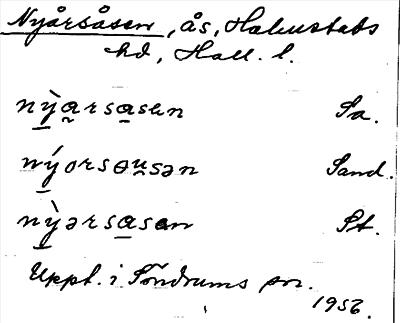 Nyårsåsen, ås, Halmstads
hd, Hall. l.
nỳa̰rsasen Sa.
nýorsɵṵsən Sand.
nỳərsasən St.
Uppt. i Söndrums sn.
1956.